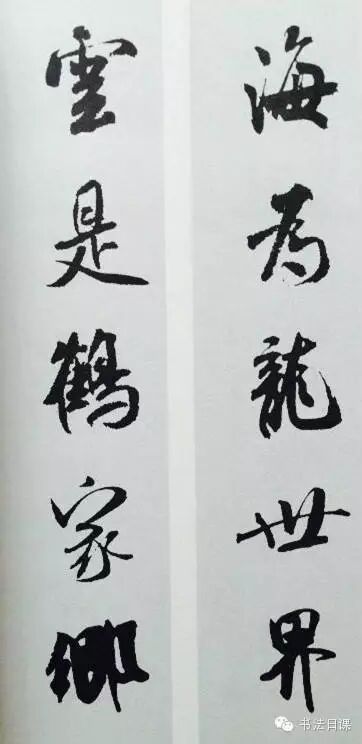 海為龍世界
雲是鶴家鄉
书法日课